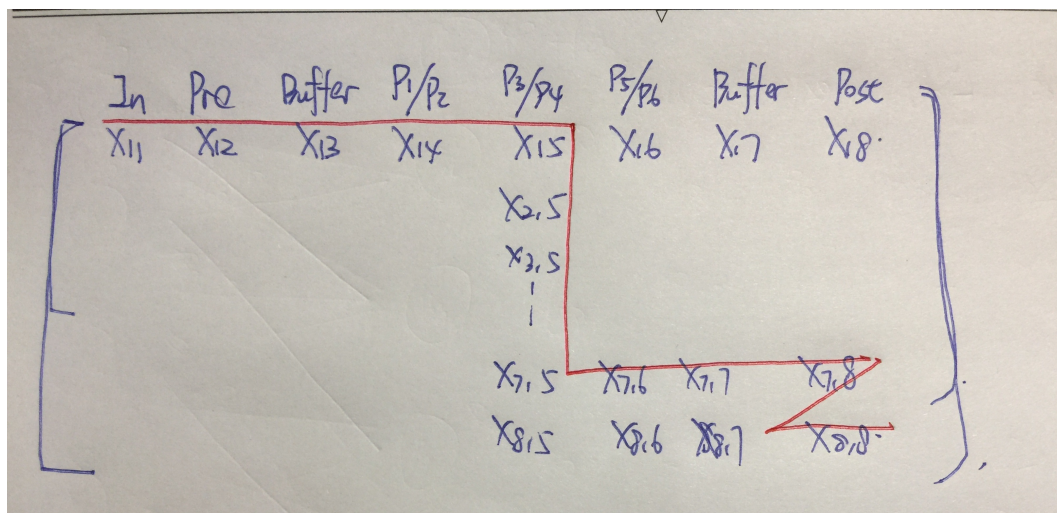 In Pre Buffer P1/P2 P3/P4 P5/P6 Buffer Post
X11 X12 X13 X14 X15 X1.6 X1.7 X1.8.
X2,5
X3,5
X7,5 X7,6 X7,7 X7,8
X8,5 X8,6 X8,7 X8,8.